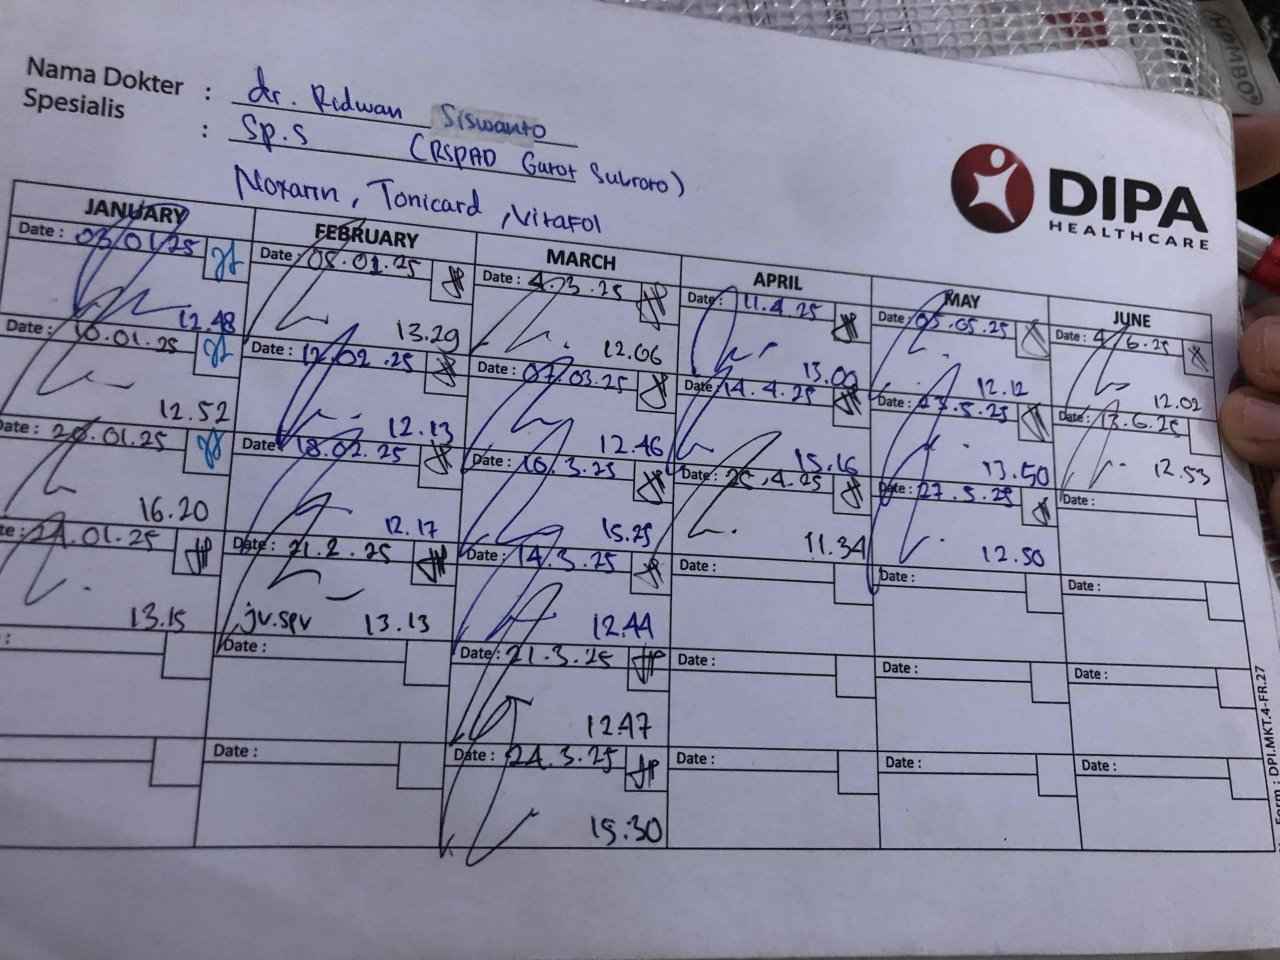 Nama Dokter : dr. Ridwan Siswanto
Spesialis : Sp.S (RSPAD Gatot Subroto)
Noxarin, Tonicard, Vitafol
DIPA
HEALTHCARE
JANUARY
Date : 03/01/25
12.48
10.01.25
12.52
Date : 20.01.25
16.20
13.15
FEBRUARY
Date : 05.01.25
13.29
Date : 12.02.25
12.13
Date : 18.02.25
12.17
Date : 21.2.25
jv.spv 13.13
Date :
Date :
MARCH
Date : 4.3.25
12.06
Date : 07.03.25
12.46
Date : 10.3.25
15.25
Date : 14.3.25
12.44
Date : 21.3.25
12.47
Date : 24.3.25
15.30
APRIL
Date : 11.4.25
13.09
Date : 14.4.25
15.16
Date : 4.25
11.34
Date :
Date :
Date :
MAY
Date : 05.05.25
12.12
Date : 23.5.25
13.50
Date : 27.5.25
12.50
Date :
Date :
Date :
JUNE
Date : 4.6.25
12.02
Date : 13.6.25
12.53
Date :
Date :
Date :
Date :
Form : DPI.MKT.4-FR.27